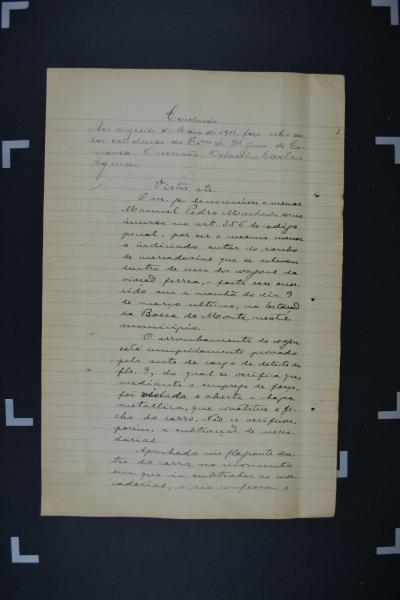 Conclusão
Aos vinte de Maio de 1912, faço estes au-
tos conclusos ao Exmo Sr. Dr. Juiz da Co-
marca. O escrivão,
Aguiar
1
Vistos etc.
O m. p. denunciou o menor
Manoel Pedro Machado como
incurso no art. 356 do codigo
penal, por ser o mesmo menor
o indiciado autor do roubo
de mercadorias que se achavam
dentro de um dos wagons da
viação ferrea, - facto esse occor-
rido em a manhã do dia 9
de março ultimo, na Estação
da Bocca do Monte, neste
municipio.
O arrombamento do wagon
está cumpridamente provado
pelo auto de corpo de delicto de
fls. 9, do qual se verifica que,
mediante o emprego de força,
foi violada e aberta a chapa
metallica, que constitue o fe-
cho do carro. Não se verificou,
porém, a subtracção de merca-
dorias.
Apanhado em flagrante den-
tro do carro, no momento
em que ia subtrahir as mer-
cadorias, o réo confessou o